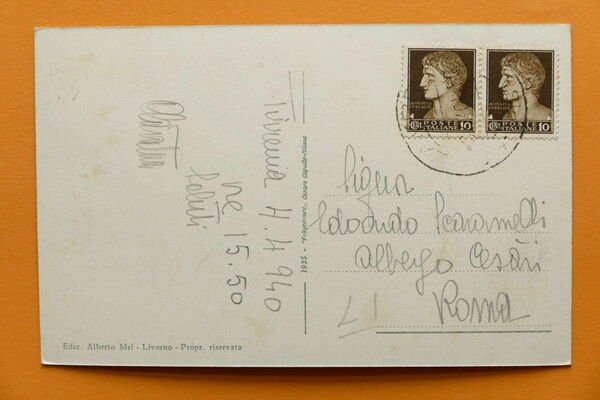 POSTE ITALIANE 10
POSTE ITALIANE 10
4.4.940
ne 15.50
Saluti
1935 - Fotogravure. Cesare Capello-Milano
Signor
Edoardo Scaramelli
Albergo Cesàri
Roma
Ediz. Alberto Mei - Livorno - Propr. riservata